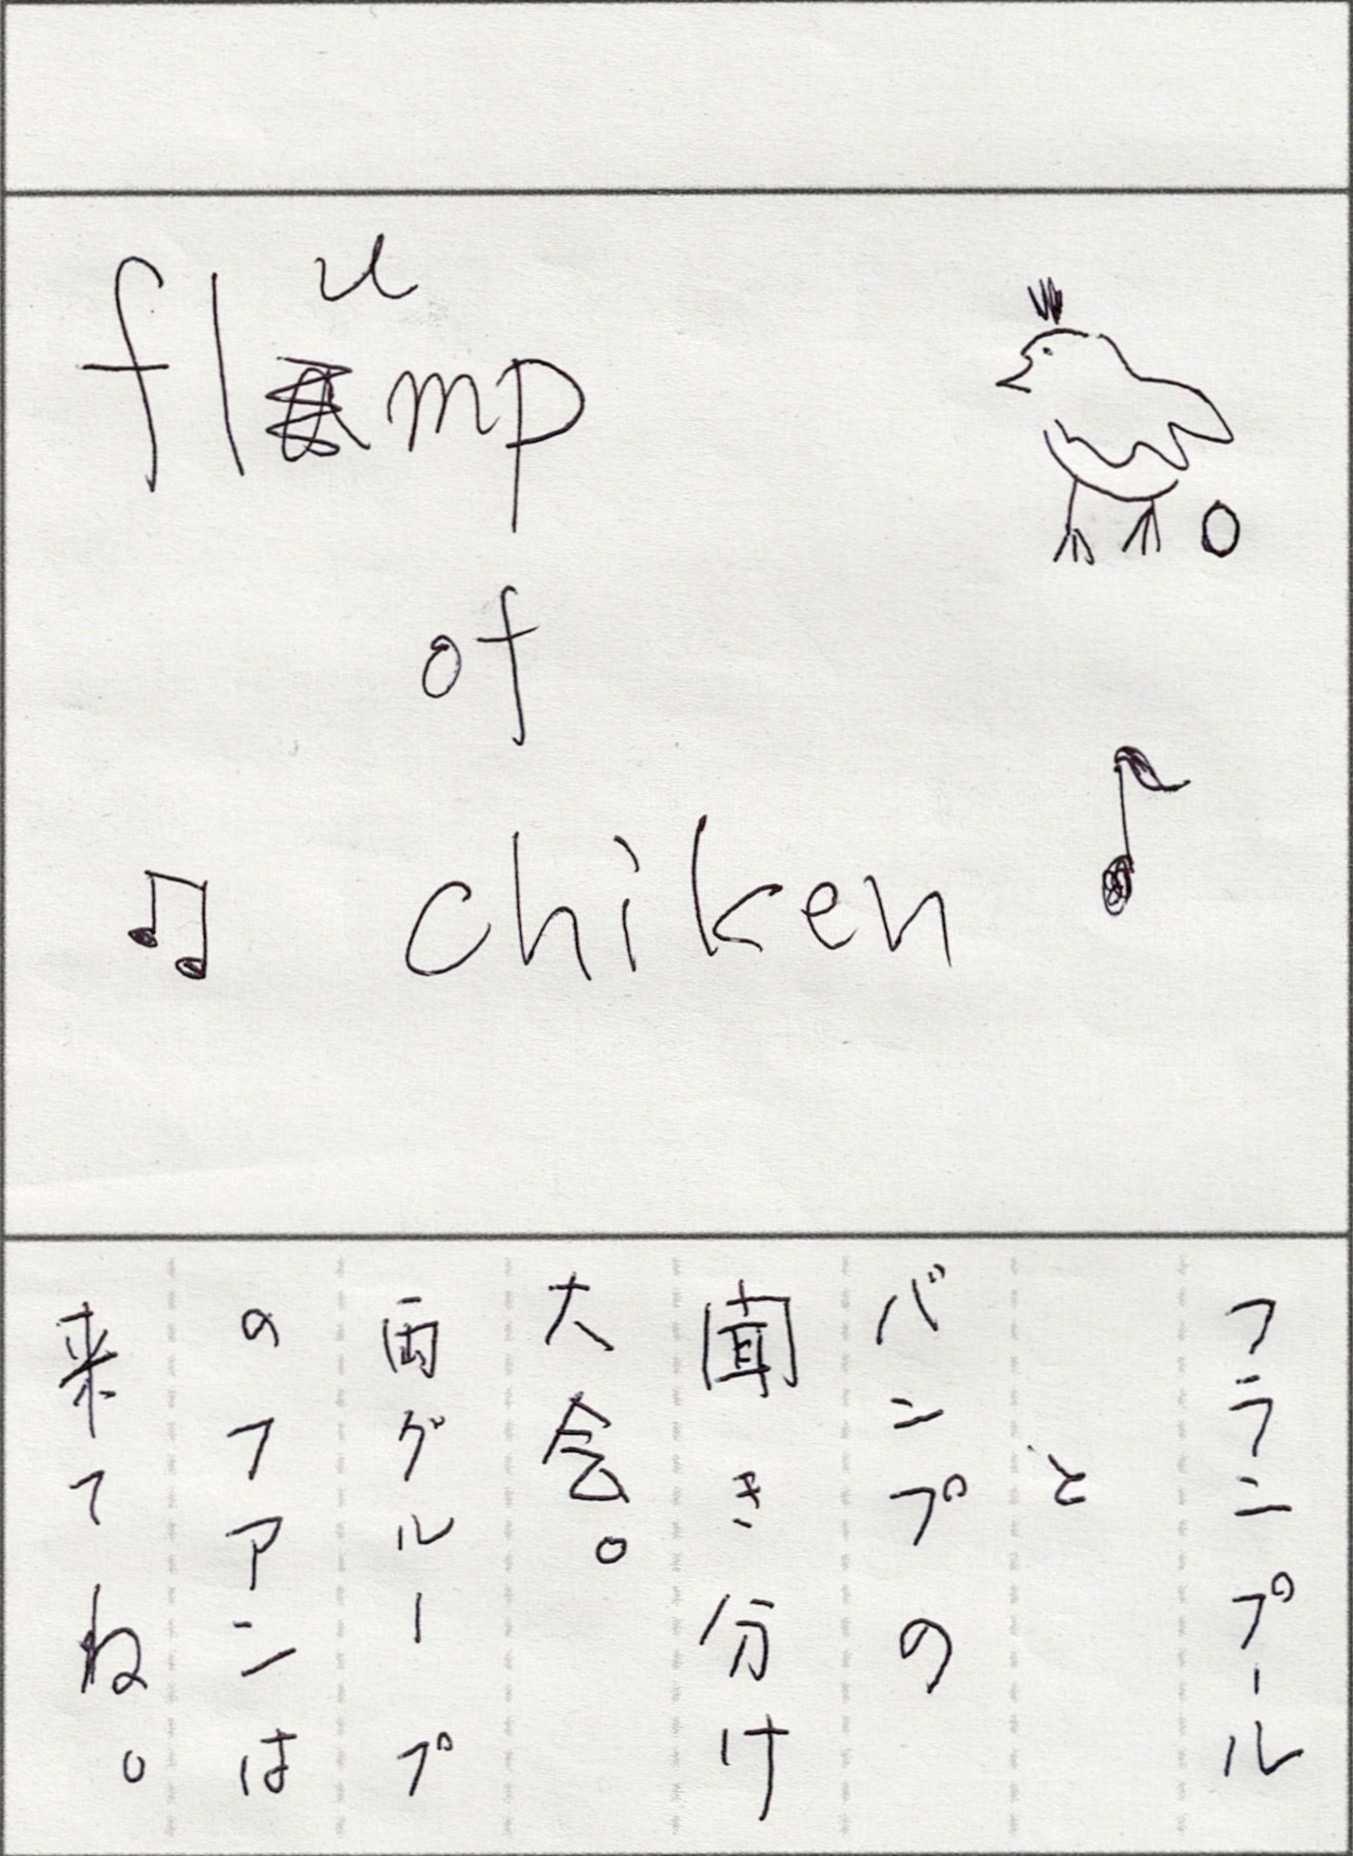 flump
of
chiken
フランプール
と
バンプの
聞き分け
大会。
両グループ
のファンは
来てね。